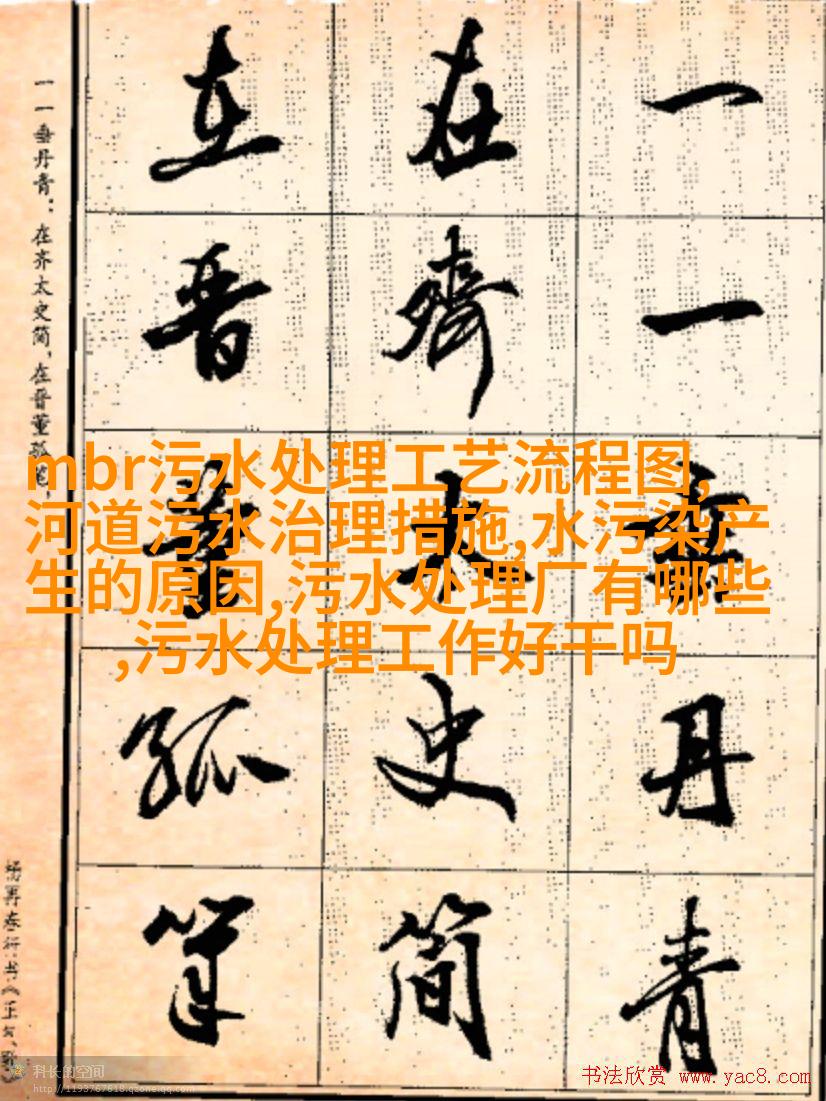 一一垂丹青
在齐太史简
在晋董狐笔
一一垂丹青：在齐太史简，在晋董狐笔，
mbr污水处理工艺流程图,
河道污水治理措施,水污染产
生的原因,污水处理厂有哪些
,污水处理工作好干吗
科长的空间
http://1193767618.qzone.qq.com
书法欣赏 www.yac8.com